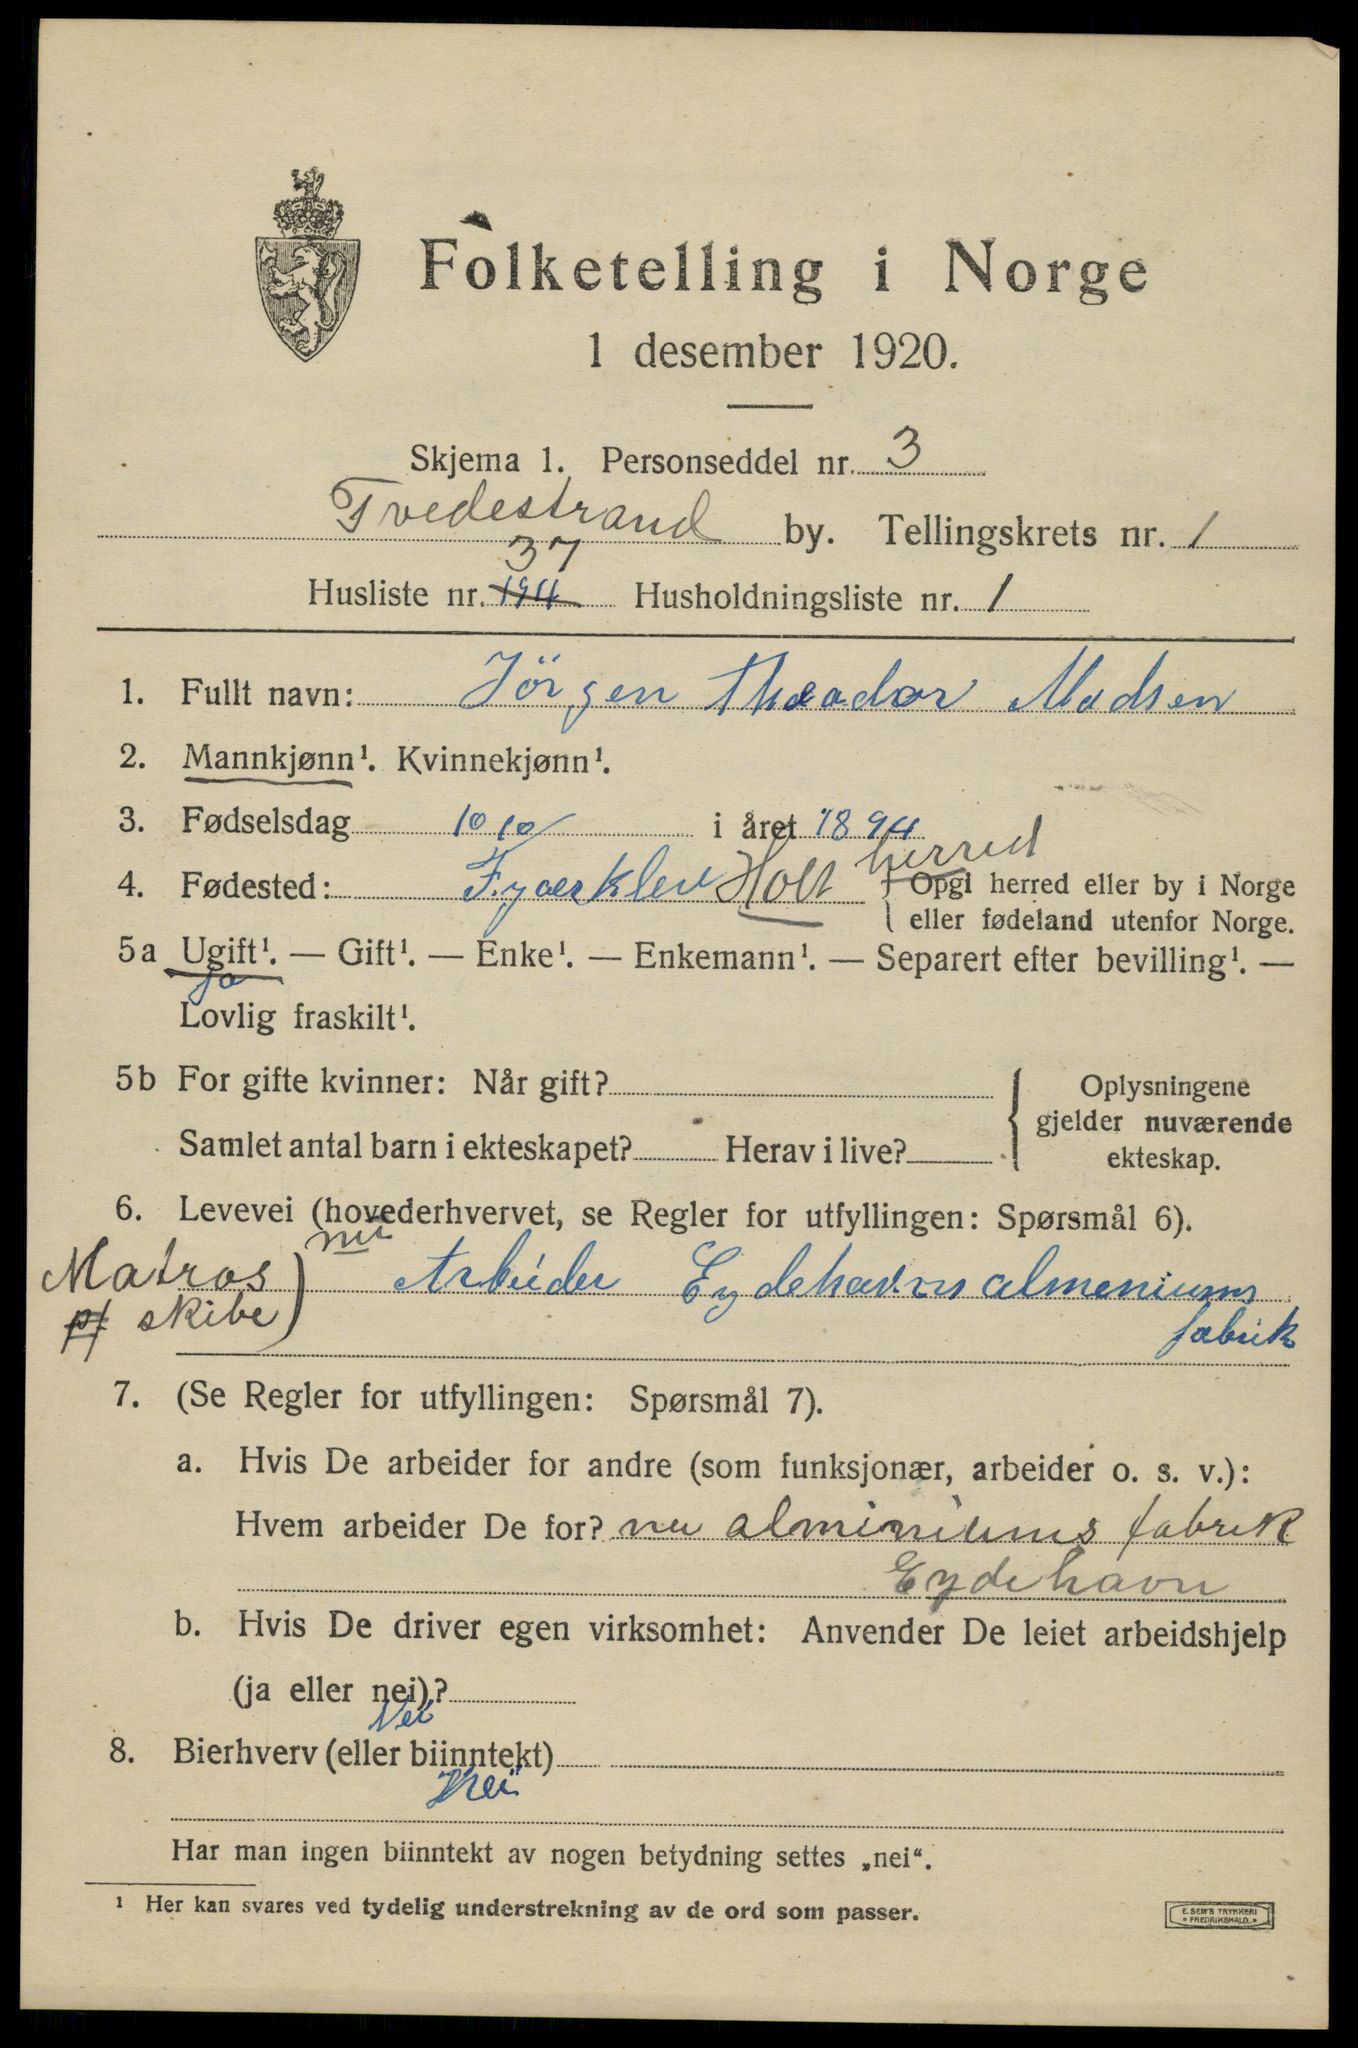 Folketelling i Norge
1 desember 1920.
Skjema 1. Personseddel nr. 3
Tvedestrand by. Tellingskrets nr. 1
37
Husliste nr. 194 Husholdningsliste nr. 1
1. Fullt navn: Jörgen Theodor Madsen
2. Mannkjønn¹. Kvinnekjønn¹.
3. Fødselsdag 10/10 i året 1894
herred
4. Fødested: Fjærkleiv Holt { Opgi herred eller by i Norge
eller fødeland utenfor Norge.
5a Ugift¹. — Gift¹. — Enke¹. — Enkemann¹. — Separert efter bevilling¹. —
ja
Lovlig fraskilt¹.
5b For gifte kvinner: Når gift? { Oplysningene
gjelder nuværende
Samlet antal barn i ekteskapet? Herav i live? ekteskap.
6. Levevei (hovederhvervet, se Regler for utfyllingen: Spørsmål 6).
nu
Matros ) Arbeider Eydehavns almeniums
på skibe fabrik
7. (Se Regler for utfyllingen: Spørsmål 7).
a. Hvis De arbeider for andre (som funksjonær, arbeider o. s. v.):
Hvem arbeider De for? nu alminiums fabrik
Eydehavn
b. Hvis De driver egen virksomhet: Anvender De leiet arbeidshjelp
(ja eller nei)?
Nei
8. Bierhverv (eller biinntekt)
Nei
Har man ingen biinntekt av nogen betydning settes „nei“.
¹ Her kan svares ved tydelig understrekning av de ord som passer.
E. SEM'S TRYKKERI
FREDRIKSHALD